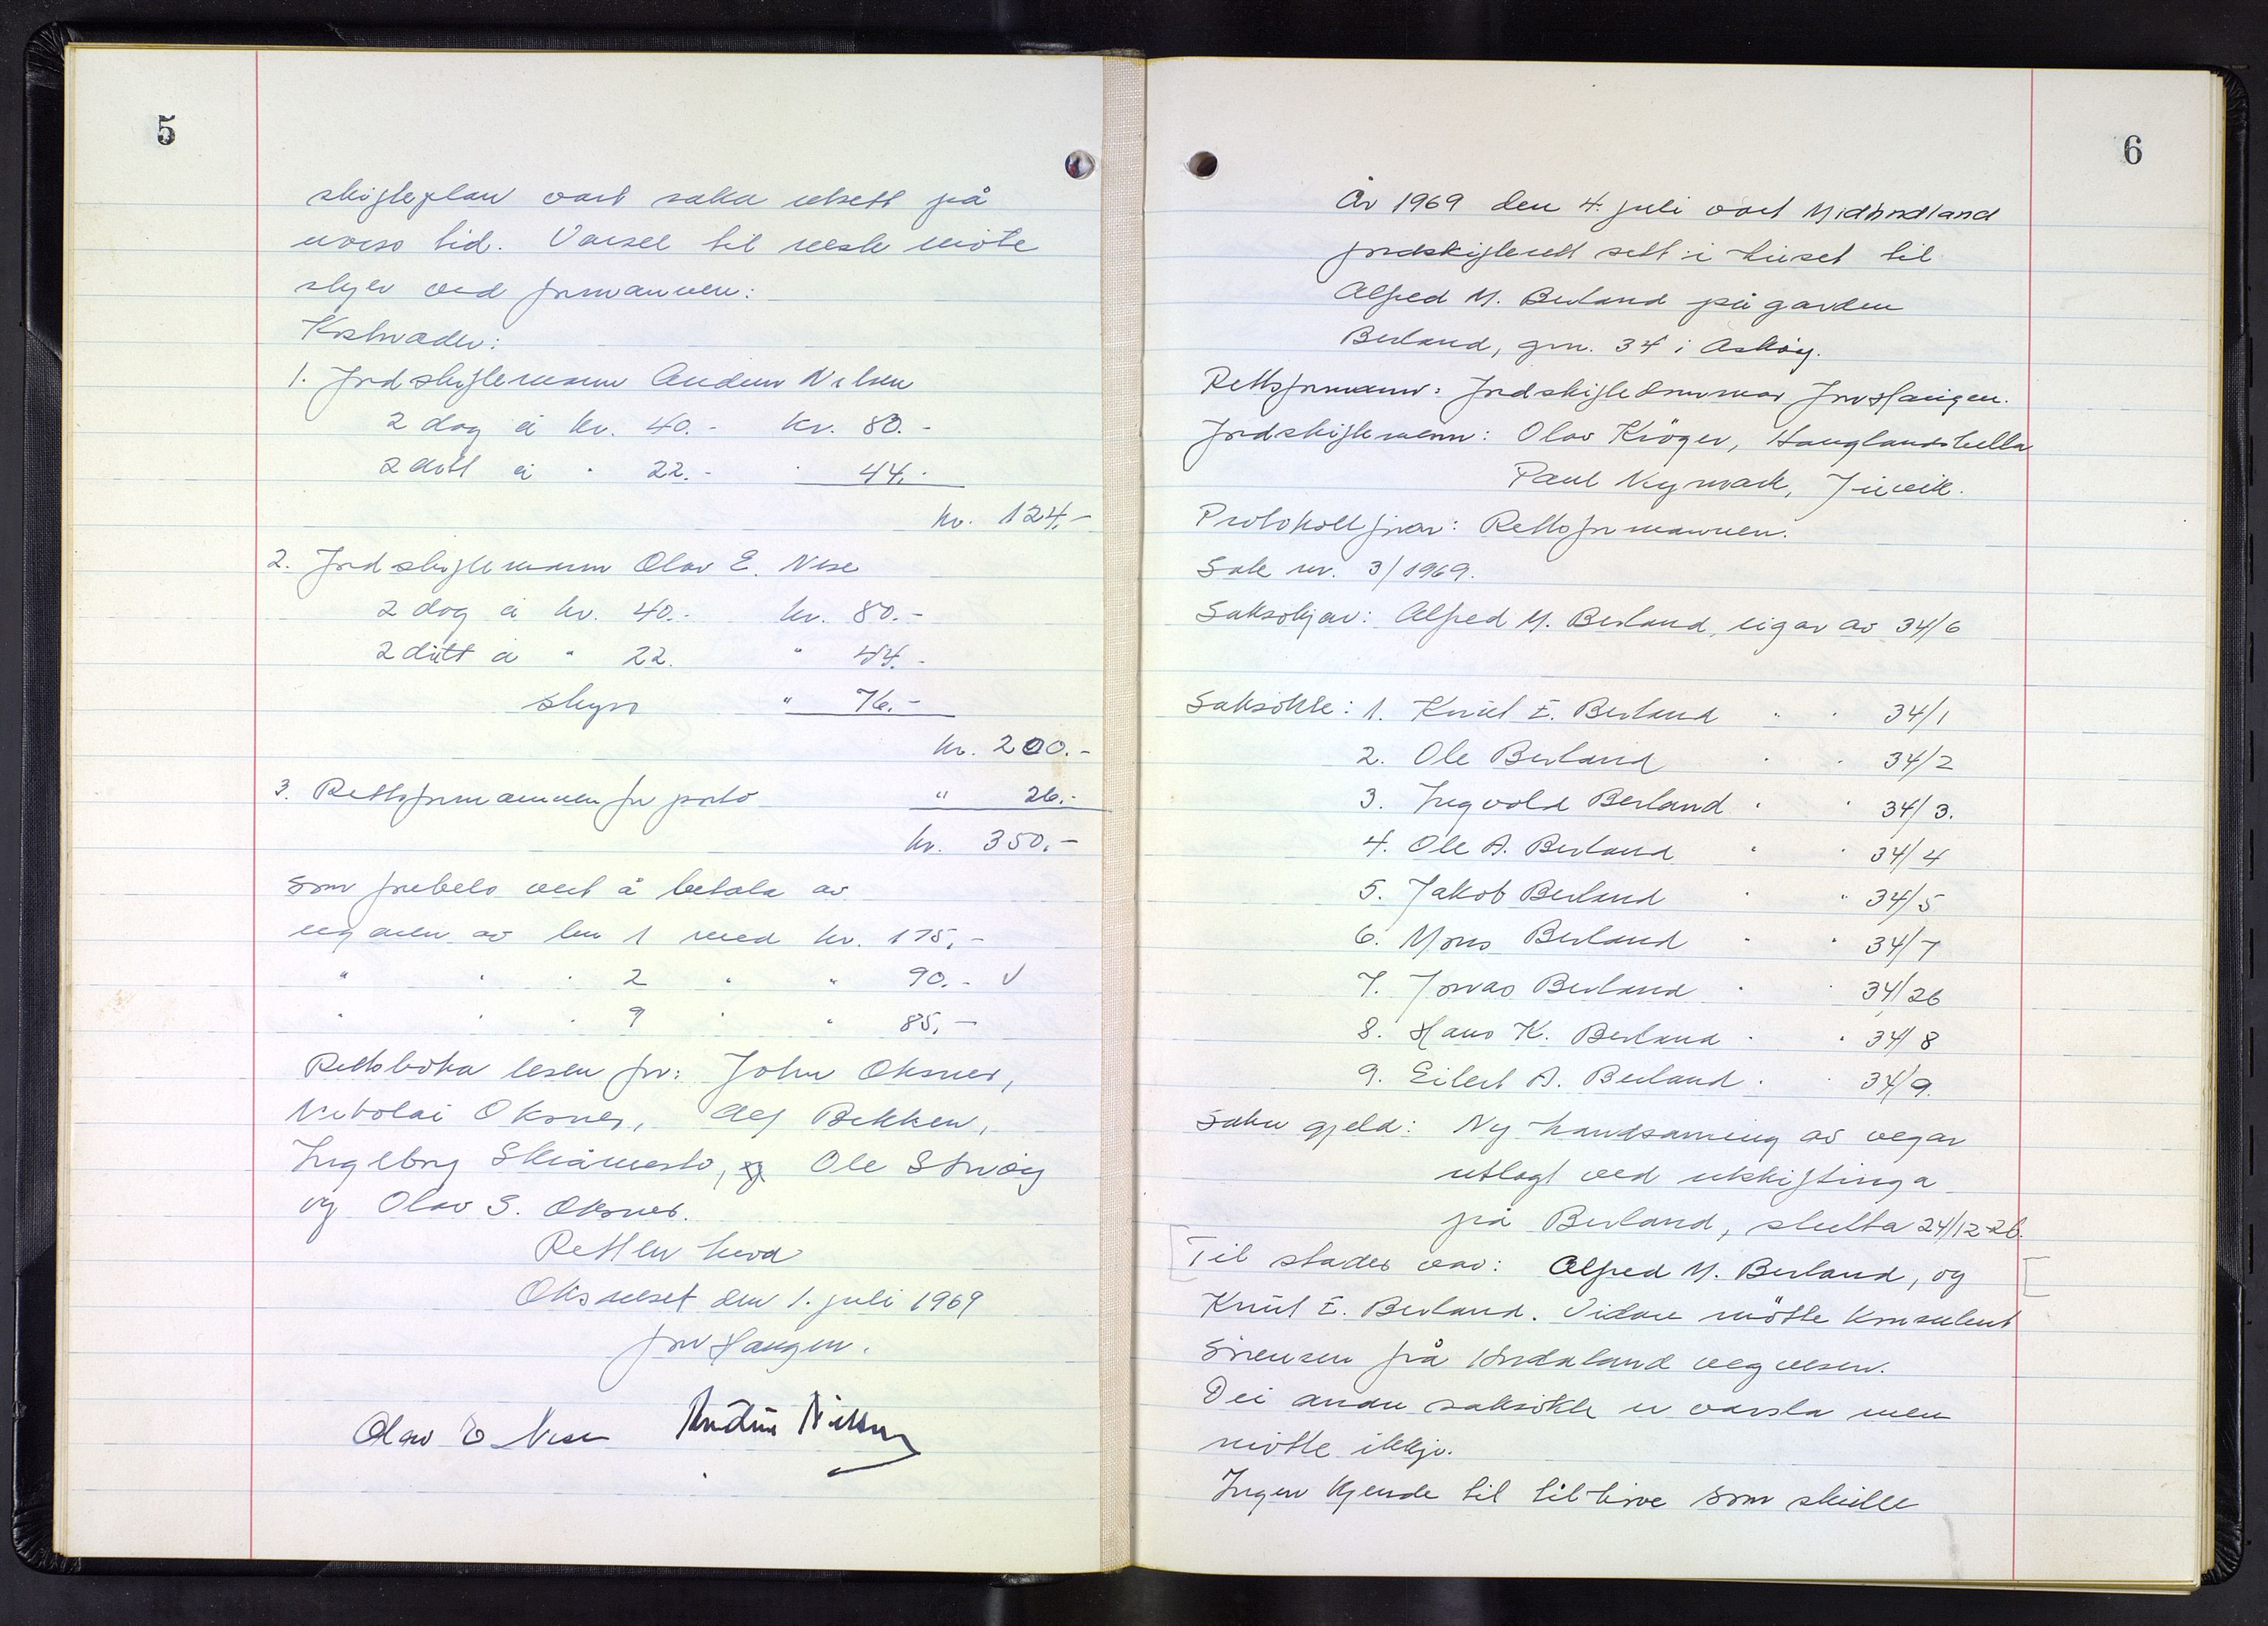 5
skifteplan vart saka utsett på
uviss tid. Varsel til neste møte
skjer ved formannen:
Kostnader:
1. Jordskiftemann Andens Nilsen
2 dag á kr. 40.- kr. 80.-
2 diett á " 22.- " 44.-
kr. 124,-
2. Jordskiftemann Olav E. Nese
2 dag á kr. 40.- kr. 80.-
2 diett á " 22. " 44.-
skyss " 76.-
kr. 200.-
3. Rettsformannen for porto " 26.-
kr. 350.-
som førebels vert å betala av
eigaren av bnr 1 med kr. 175,-
" " " 2 " " 90.- V
" " " 9 " " 85,-
Rettsboka lesen for: John Oksnes,
Nikolai Oksnes, Alf Bekken,
Ingeborg Skråmestø, og Ole Storøy
og Olav S. Oksnes.
Retten heva
Oksneset den 1. juli 1969
Jon Haugen.
Olav E Nese
6
År 1969 den 4. juli vart Midhordland
jordskifterett sett i huset til
Alfred M. Berland på garden
Berland, gnr. 34 i Askøy.
Rettsformann: Jordskiftedommar Jon Haugen.
Jordskiftemenn: Olav Krøger, Hauglandshella
Paul Nymark, Juvik.
Protokollførar: Rettsformannen.
Sak nr. 3/1969.
Saksøkjar: Alfred M. Berland, eigar av 34/6
Saksøkte: 1. Knut E. Berland " " 34/1
2. Ole Berland " " 34/2
3. Ingvald Berland " " 34/3.
4. Ole A. Berland " " 34/4
5. Jakob Berland " " 34/5
6. Mons Berland " " 34/7
7. Jonas Berland " " 34/26
8. Hans K. Berland " " 34/8
9. Eilert A. Berland " " 34/9.
Saka gjeld: Ny handsaming av vegar
utlagt ved utskiftinga
på Berland, slutta 24/12-26.
Til stades var: Alfred M. Berland, og
Knut E. Berland. Vidare møtte konsulent
Sørensen frå Hordaland vegvesen.
Dei andre saksøkte er varsla men
møtte ikkje.
Ingen kjende til tilhøve som skulle